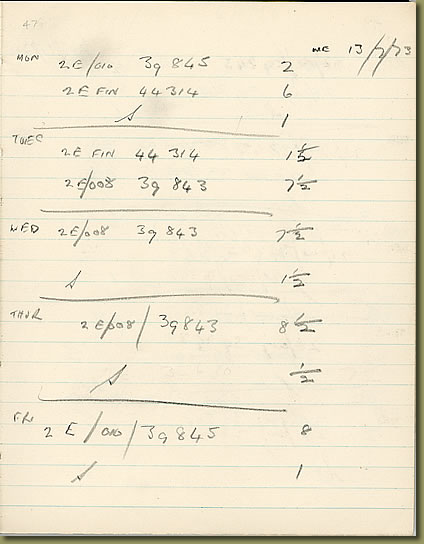 47
WE 13/7/73
MON 2E/010 39 845 2
2E FIN 44314 6
S 1
TUES 2E FIN 44 314 1½
2E/008 39 843 7½
WED 2E/008 39 843 7½
S 1½
THUR 2E/008/39843 8½
S ½
FRI 2 E/010/39845 8
S 1